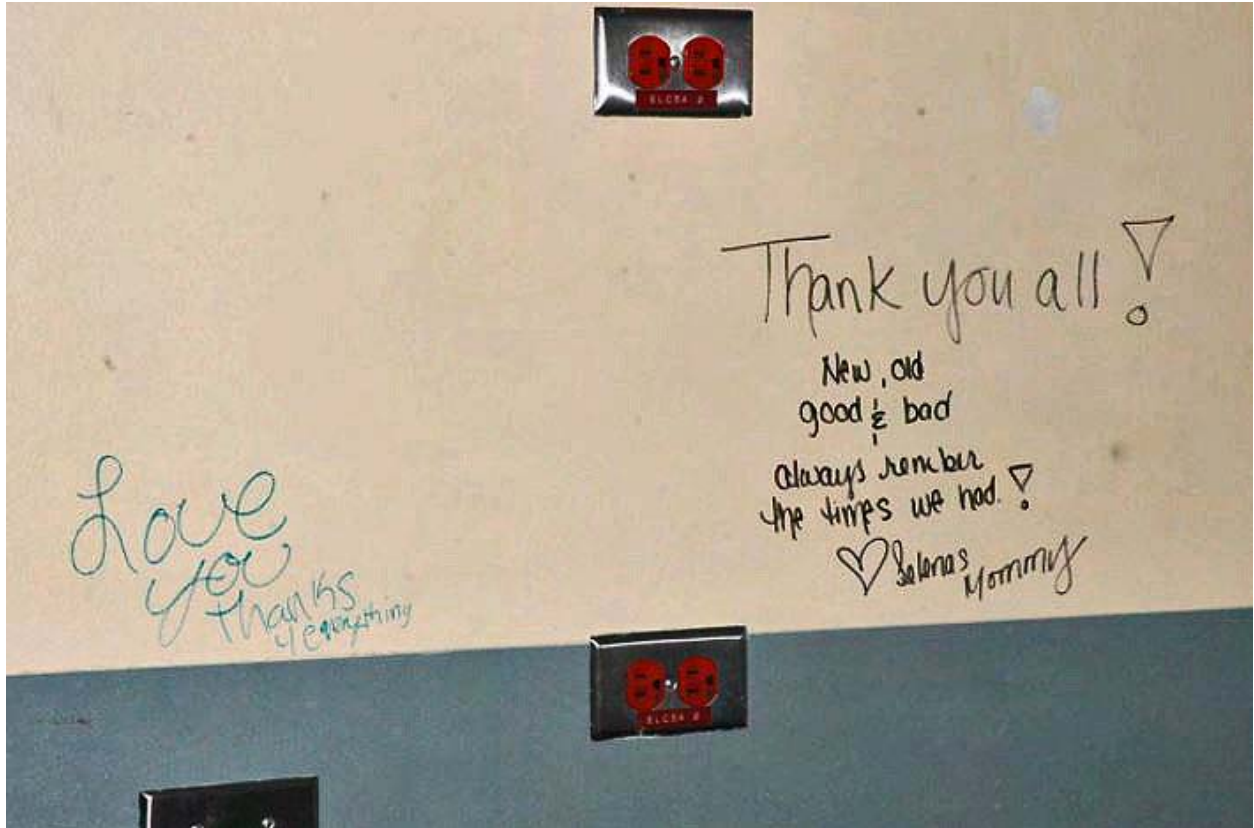 Thank you all!
New, old
good & bad
always rember
the times we had.!
Selenas
Mommy
Love
you
thanks
4 everything